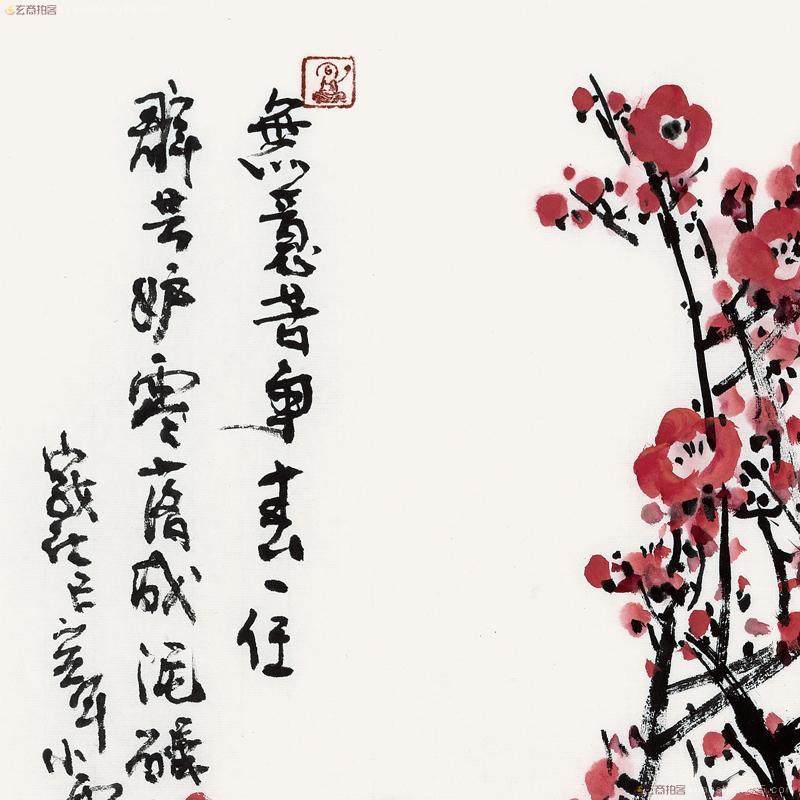 玄商拍客
無意苦爭春一任
群芳妒零落成泥碾
歲在己亥年小雪
玄商拍客